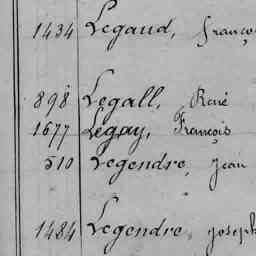 1434 Legaud, Franço
898 Legall, René
1677 Legay, François
510 Legendre, Jean
1484 Legendre, Joseph